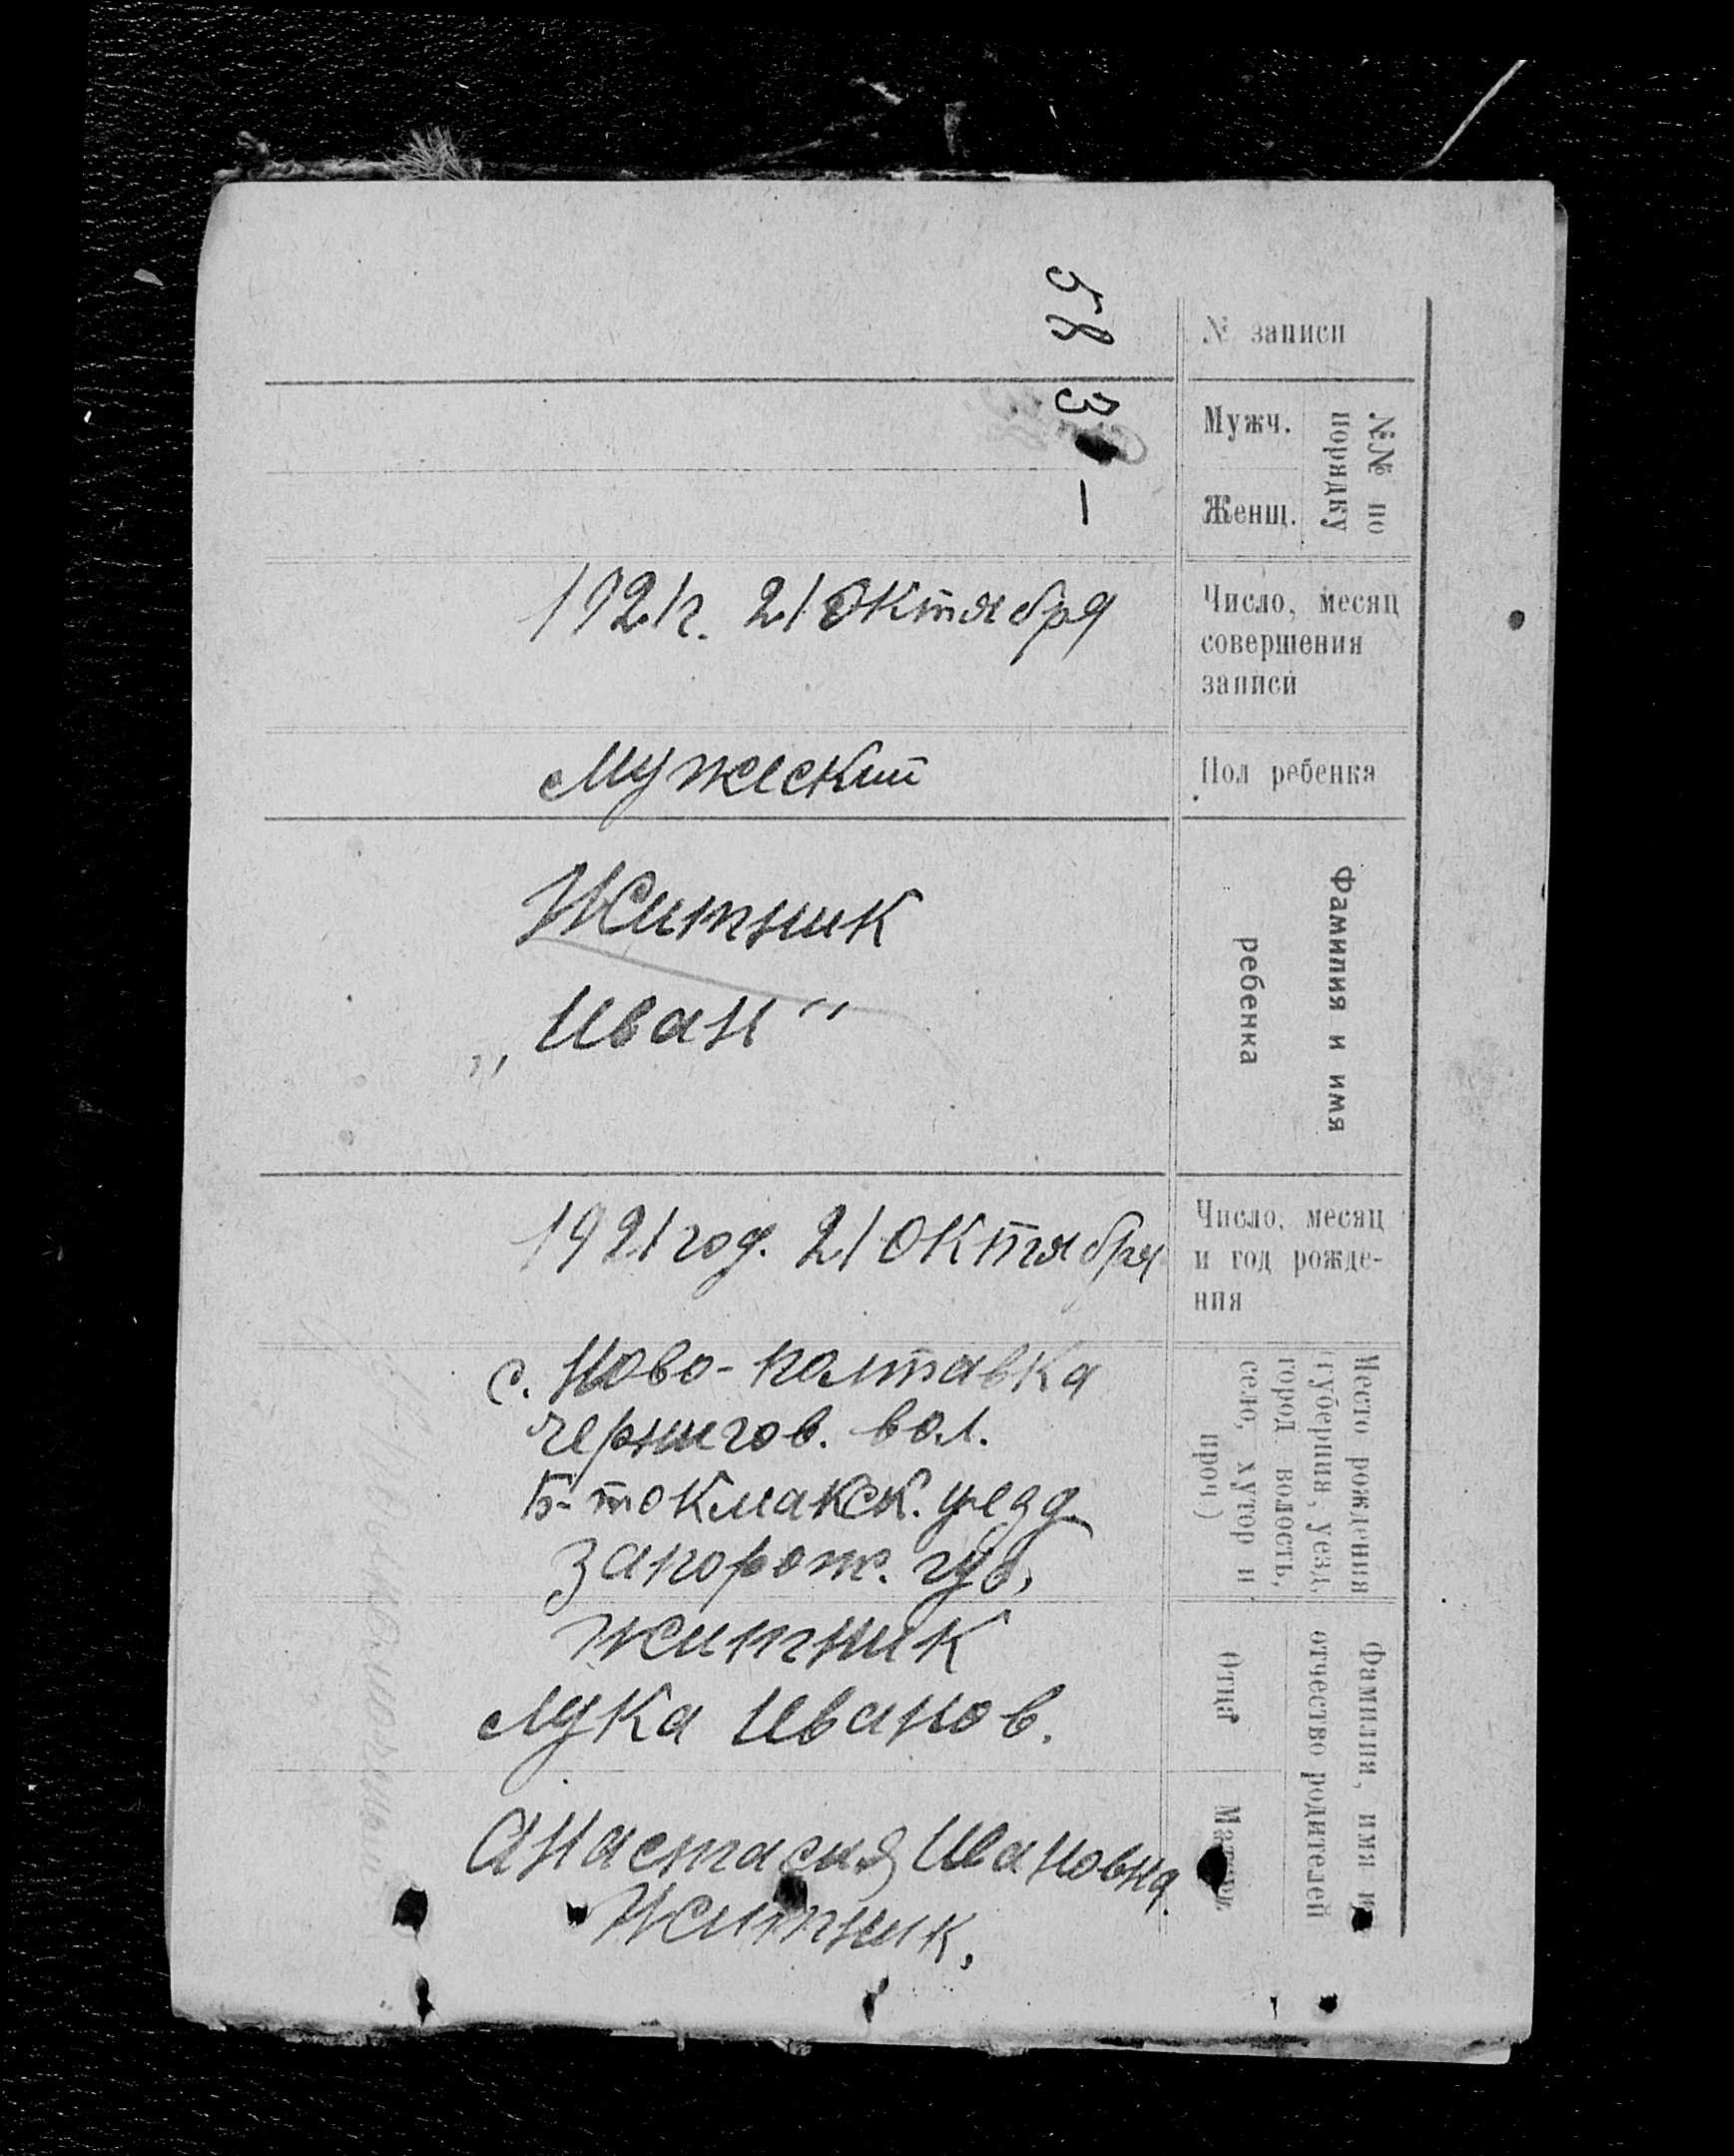 № записи
58
№№ по
порядку
Мужч.
3
Женщ.
—
Число, месяц
совершения
записи
1921г. 21 Октября
Пол ребенка
Мужеский
Фамилия и имя
ребенка
Житник
„Иван“
Число, месяц
и год рожде-
ния
1921 год. 21 Октября
Место рождения
(губерния, уезд,
город волость,
село, хутор и
проч)
с. Ново-полтавка
чернигов. вол.
Б-токмакск. уезд
запорож. губ.
Фамилия, имя и
отчество родителей
Отца
житник
Лука Иванов.
Матери
Анастасия Ивановна
Житник.